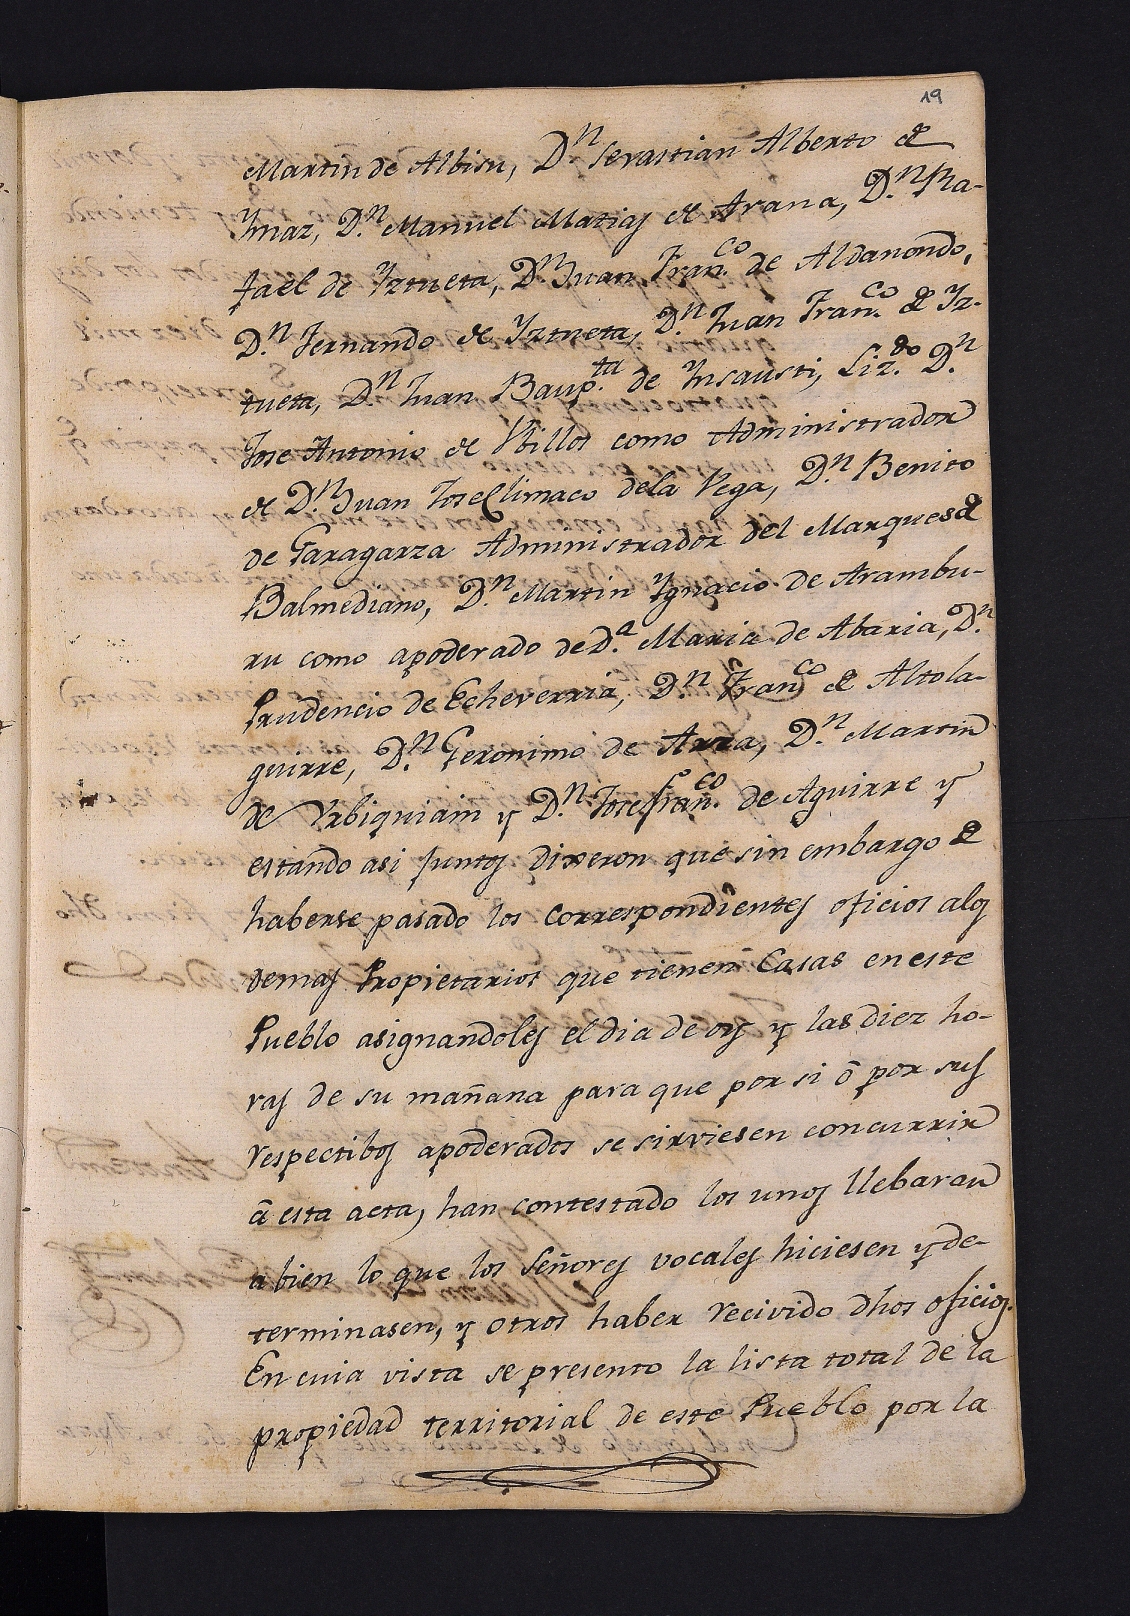 19
Martin de Albisu, D.n Sevastian Alberto de
Ymaz, D.n Manuel Matias de Arana, D.n Ra-
fael de Yztueta, D.n Juan Fran.co de Aldanondo,
D.n Fernando de Yztueta, D.n Juan Fran.co de Yz-
tueta, D.n Juan Baup.ta de Ynsausti, Liz.do D.n
Jose Antonio de Vbillos como Administrador
de D.n Juan Jose Climaco dela Vega, D.n Benito
de Garagarza Administrador del Marques de
Balmediano, D.n Martin Ygnacio de Arambu-
ru como apoderado de D.a Maria de Abaria, D.n
Prudencio de Echeverria, D.n Fran.co de Altola-
guirre, D.n Geronimo de Arza, D.n Martin
de Vrbiquiain y D.n Jose Fran.co de Aguirre y
estando asi juntos dixeron que sin embargo de
haberse pasado los correspondientes oficios alos
demas Propietarios que tienen Casas en este
Pueblo asignandoles el dia de oy y las diez ho-
ras de su mañana para que por si ō por sus
respectibos apoderados se sirviesen concurrir
ā esta acta, han contestado los unos llebaran
a bien lo que los Señores vocales hiciesen y de-
terminasen, y otros haber recivido dhos oficios.
En cuia vista se presento la lista total de la
propiedad territorial de este Pueblo por la